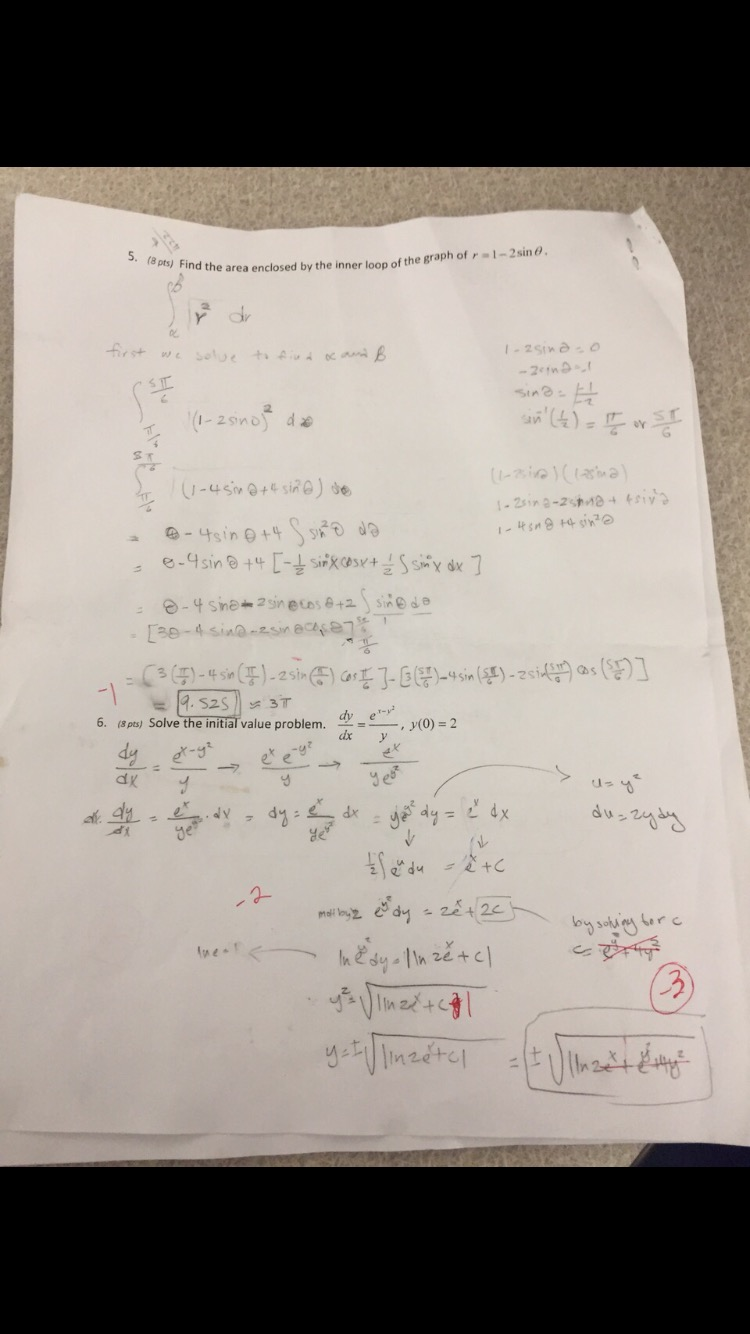 5. (8 pts) Find the area enclosed by the inner loop of the graph of r = 1 − 2 sin θ.
∫_α^β r² dr
first we solve to find α and β
1 - 2sinθ = 0
-2sinθ = -1
sinθ = -1/-2
sin⁻¹(1/2) = π/6 or 5π/6
∫_{π/6}^{5π/6} (1-2sinθ)² dθ
∫_{π/6}^{5π/6} (1-4sinθ+4sin²θ) dθ
(1-2sinθ)(1-2sinθ)
1-2sinθ-2sinθ + 4sin²θ
1-4sinθ+4sin²θ
= θ-4sinθ+4∫sin²θ dθ
= θ-4sinθ+4[-1/2 sinxcosx+1/2∫sin⁰x dx]
= θ-4sinθ-2sinθcosθ+2∫sin⁰θ dθ
1
= [3θ-4sinθ-2sinθcosθ]
= [3(π/6)-4sin(π/6)-2sin(π/6)cosπ/6]-[3(5π/6)-4sin(5π/6)-2sin(5π/6)cos(5π/6)]
-1
= 9.525 ≈ 3π
6. (8 pts) Solve the initial value problem. dy/dx = e^{x−y²}/y, y(0) = 2
dy/dx = e^{x-y²}/y → e^x e^{-y²}/y → e^x/ye^{y²}
dx. dy/dx = e^x/ye^{y²} · dx = dy = e^x/ye^{y²} dx = ye^{y²} dy = e^x dx
u = y²
du = 2ydy
1/2∫e^u du = e^x + C
-2
mult by 2 e^{y²} dy = 2e^x + 2C
by solving for c
c = e^{y²} + 4y²
ln e = 1
ln e^{y²} dy = |ln 2e^x + C|
-3
y² = √|ln 2e^x + C|
y = ±√|ln 2e^x + C| = ±√|ln 2e^x + e^{y²} + 4y²